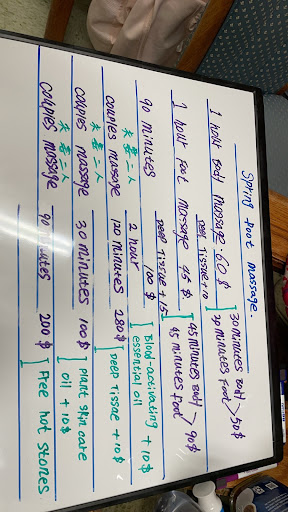 Spring Foot massage.
1 hour Body massage 60 $ [ 30 minutes Body
30 minutes Food > 50 $
Deep Tissue + 10
1 hour Foot massage 45 $ [ 45 minutes Body
45 minutes food > 90 $
Deep Tissue + 15
90 minutes 100 $ [ Blood-activating + 10 $
essential oil
夫妻二人 2 hour
couples massage 120 minutes 280 $ [ Deep Tissue + 10 $
夫妻二人
couples massage 30 minutes 100 $ [ plant skin care
oil + 10 $
夫妻二人
couples massage 90 minutes 200 $ [ Free hot stones